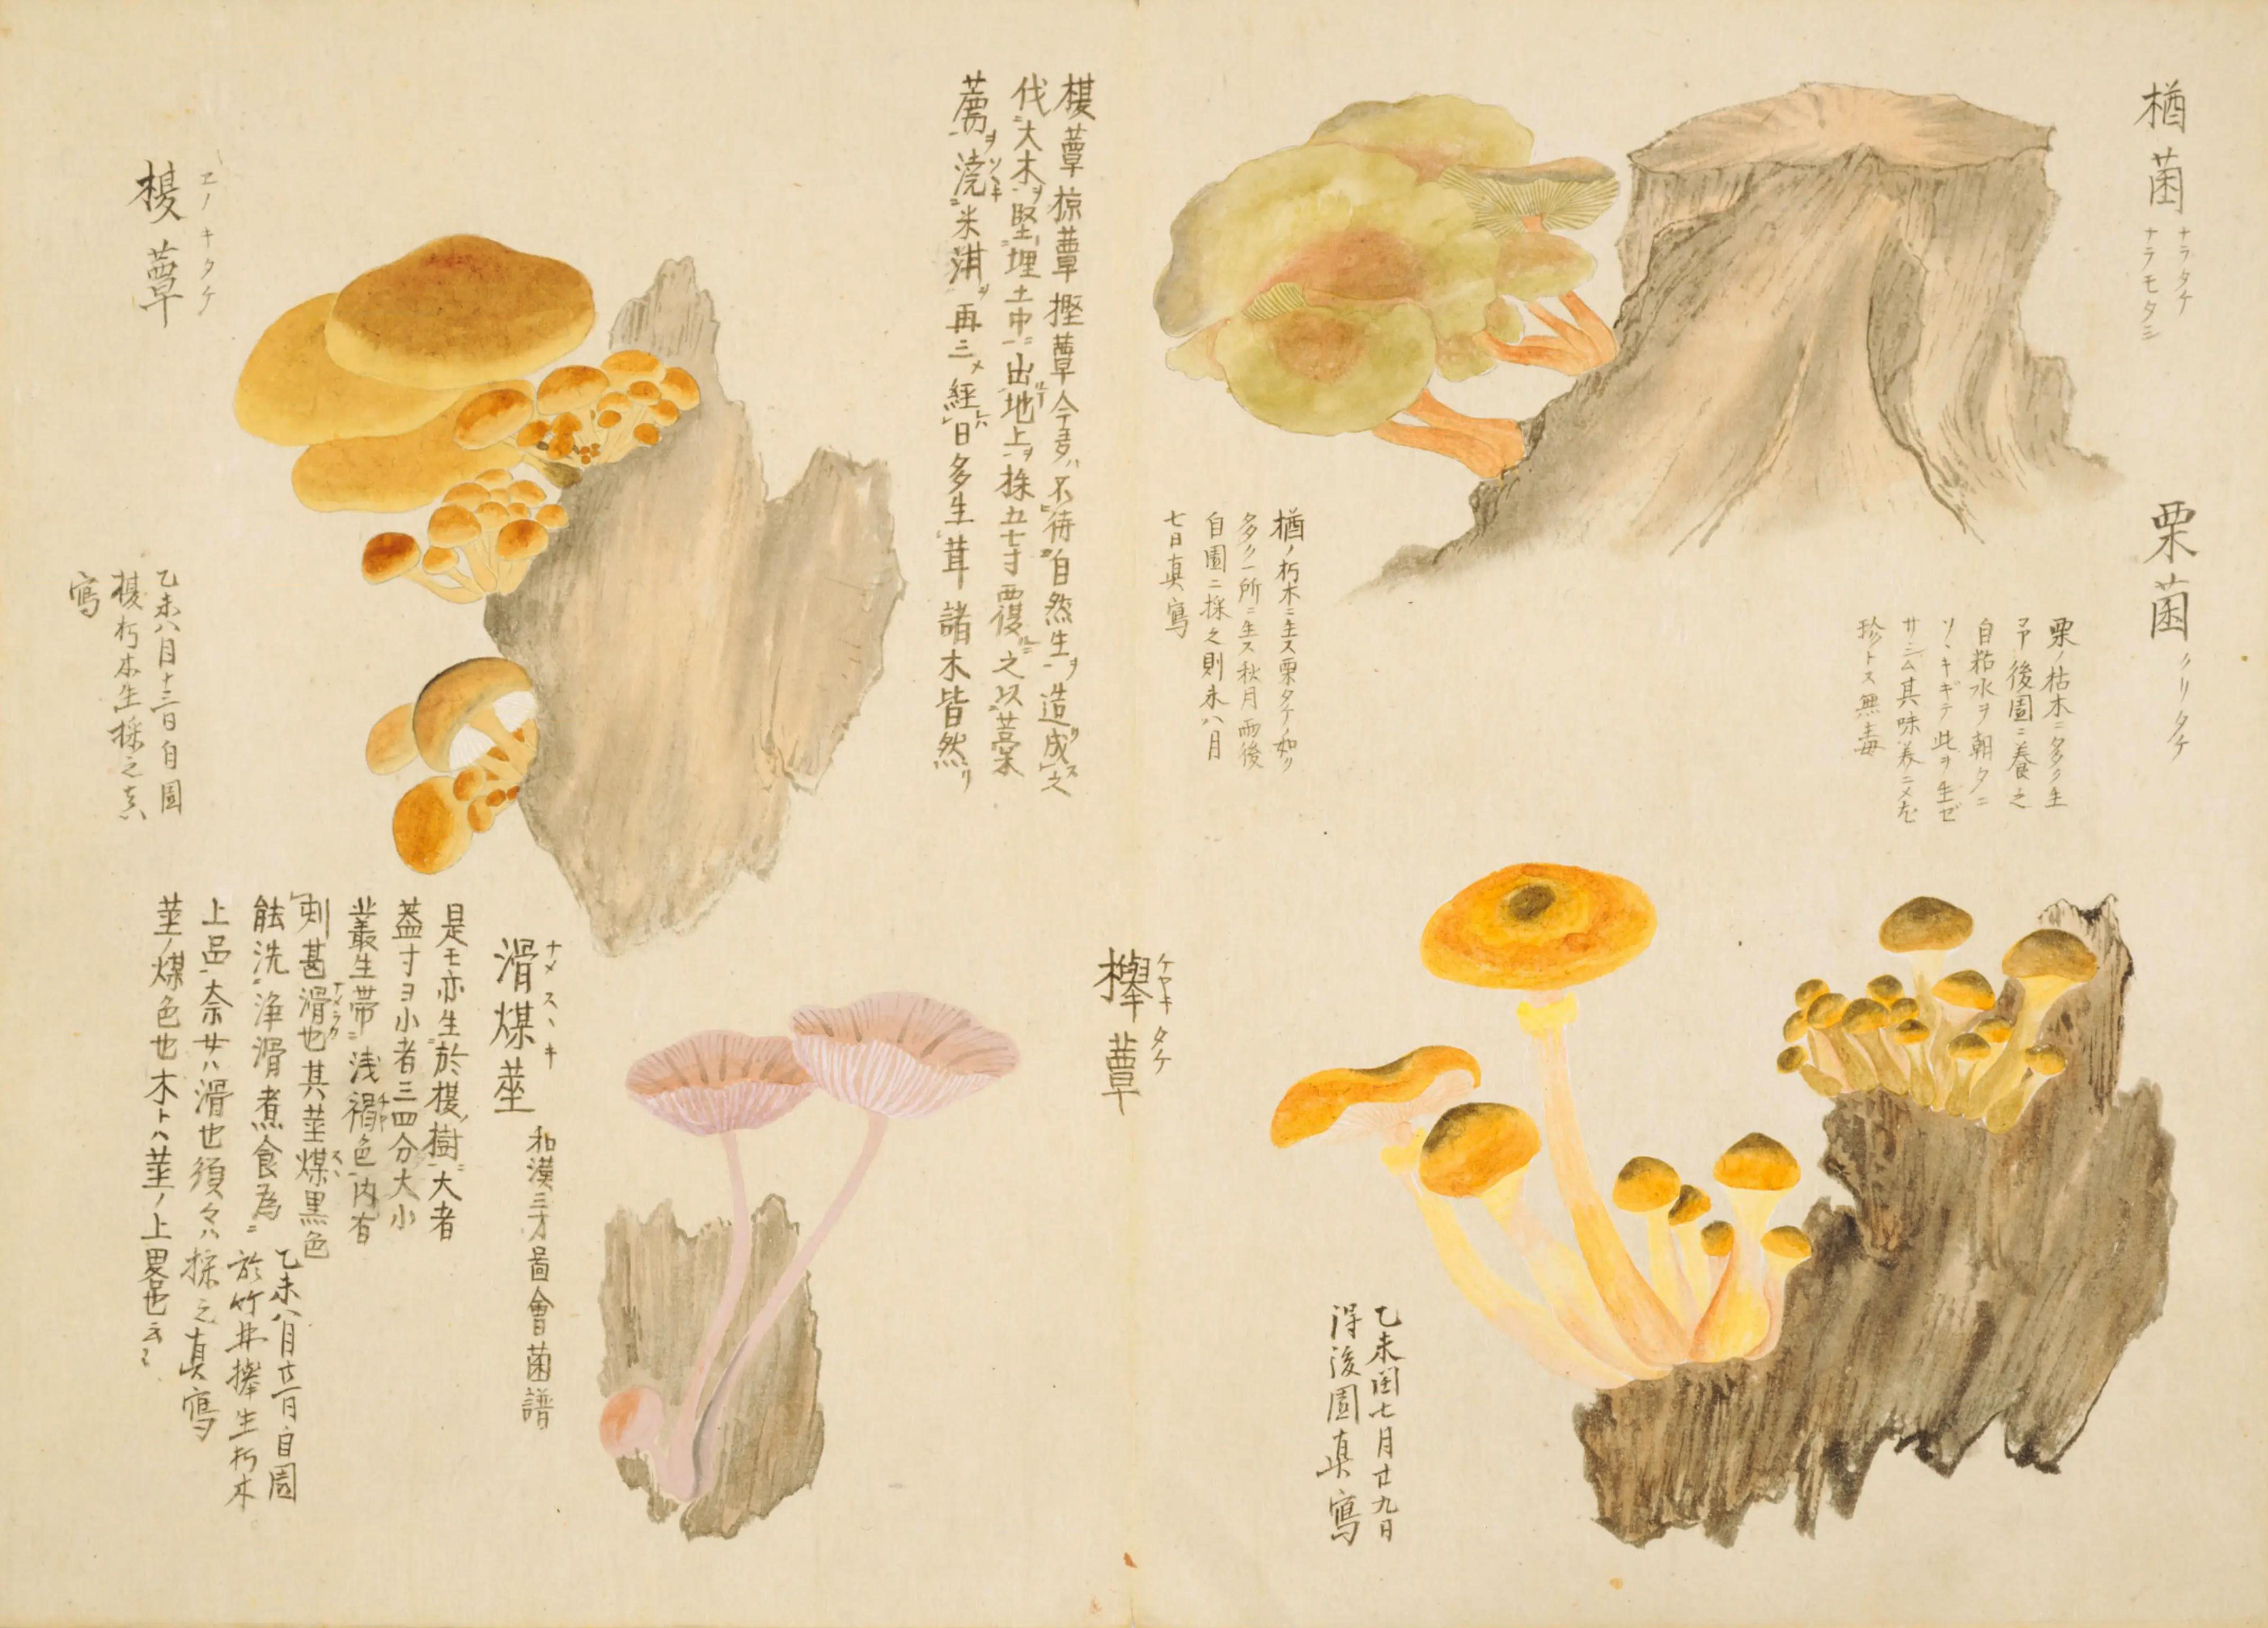 楢菌
ナラタケ
ナラモタシ
楢ノ朽木ニ生ス栗タケノ如ク
多ク一所ニ生ス秋月雨後
自園ニ採之則未八月
七日真寫
栗菌
クリタケ
栗ノ枯木ニ多ク生
予後園ニ養之
自粘水ヲ朝夕ニ
ソヽキギテ此ヲ生ゼ
サシム其味美ニメ尤
珍トス無毒
乙未閏七月廿九日
得後園真寫
欅蕈
ケヤキタケ
榎蕈椋蕈樫蕈今多ハ不待自然生ヲ造成ス之
伐大木ヲ堅埋土中出地上ヲ株五七寸而後之以藁
薦ヲ澆ソヽキ米泔ヲ再三メ経日多生茸諸木皆然リ
榎蕈
ヱノキタケ
乙未八月十三日自園
榎朽木生採之真
寫
滑煤茎
ナメスヽキ
和漢三才圖會菌譜
是モ亦生於榎樹大者
葢寸ヨ小者三四分大小
叢生帯浅褐色内有
刺甚滑也其茎煤黒色
能洗浄滑煮食為
上品奈女ハ滑也須々ハ
茎ノ煤色也木トハ茎ノ上畧也云々
乙未八月廿一日自園
於竹井欅生朽木
採之真寫